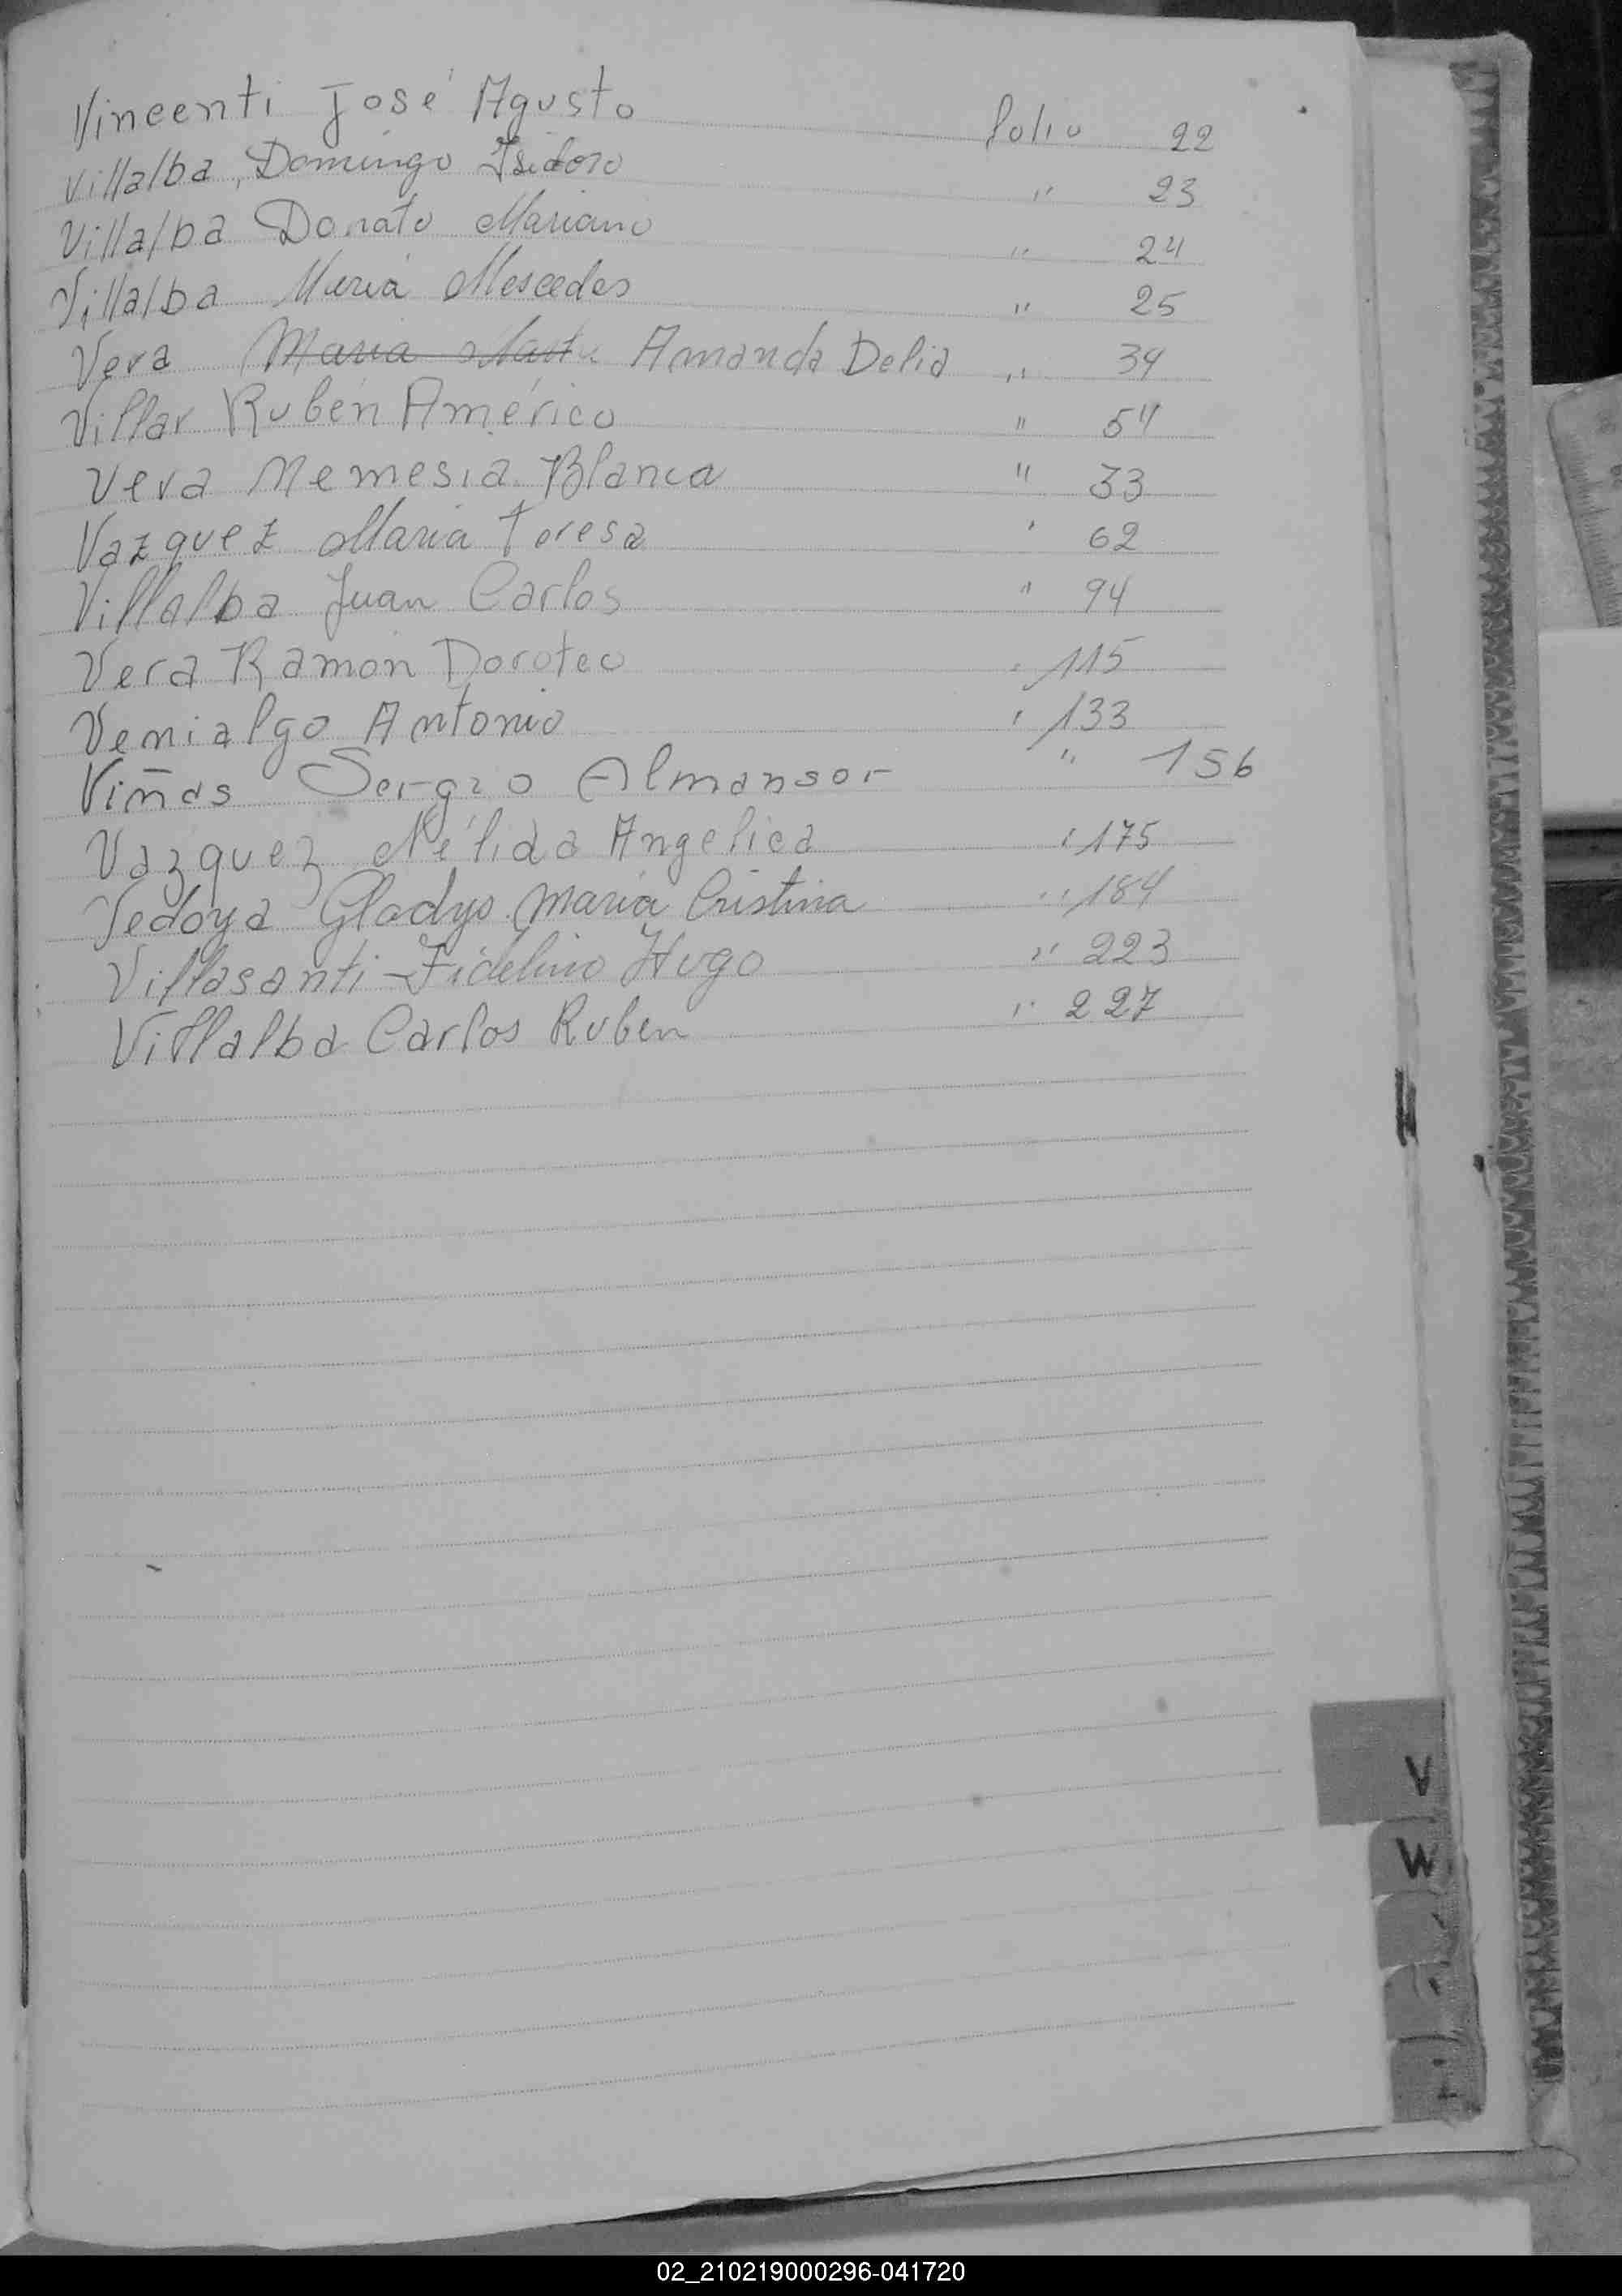 Vincenti José Agusto folio 22
Villalba, Domingo Isidoro " 23
Villalba Donato Mariano " 24
Villalba María Mercedes " 25
Vera Maria Amanda Delia " 34
Villar Rubén Américo " 54
Vera Nemesia Blanca " 33
Vazquez Maria Teresa " 62
Villalba Juan Carlos " 94
Vera Ramón Doroteo " 115
Venialgo Antonio " 133
Viñas Sergio Almansor " 156
Vazquez Nélida Angelica " 175
Vedoya Gladys Maria Cristina " 184
Villasanti Fidelino Hugo " 223
Villalba Carlos Ruben " 227
V
W
02_210219000296-041720